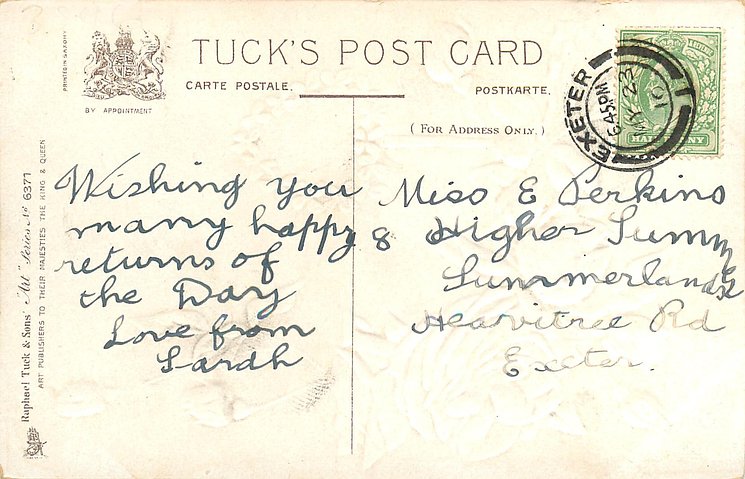 TUCK'S POST CARD
CARTE POSTALE.
POSTKARTE.
BY APPOINTMENT
(FOR ADDRESS ONLY.)
PRINTED IN SAXONY
Raphael Tuck & Sons' "Art" Series No 6371
ART PUBLISHERS TO THEIR MAJESTIES THE KING & QUEEN
EXETER
6.45PM
MY 22
10
Wishing you
many happy
returns of
the Day
Love from
Sarah
Miss E Perkins
8 Higher Summ
Summerland St
Heavitree Rd
Exeter.